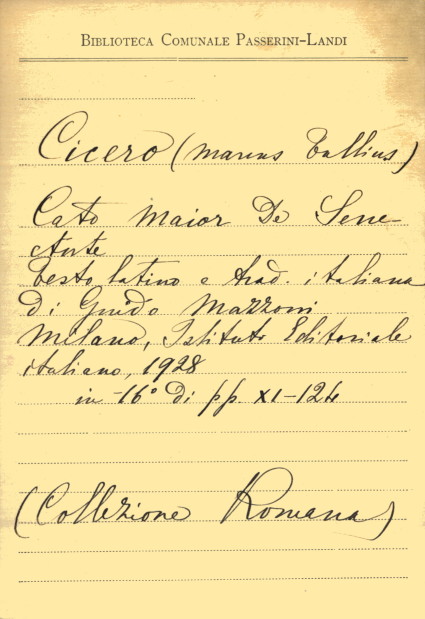 BIBLIOTECA COMUNALE PASSERINI-LANDI
Cicero (Marcus Tullius)
Cato Maior De Sene-
ctute
testo latino e trad. italiana
di Guido Mazzoni
Milano, Istituto Editoriale
italiano, 1928
in-16° di pp. XI-124
(Collezione Romana)